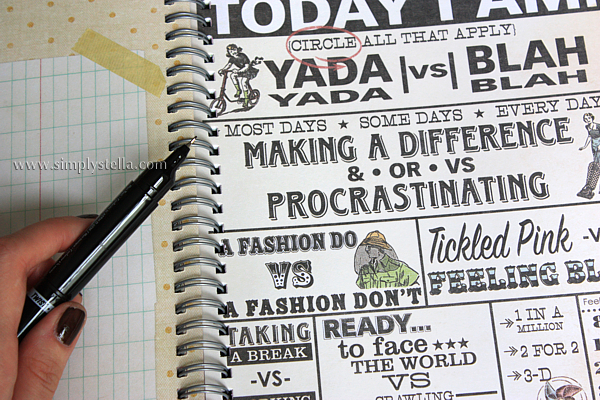 TODAY I AM
{CIRCLE ALL THAT APPLY}
YADA |vs| BLAH
YADA BLAH
MOST DAYS ★ SOME DAYS ★ EVERY DAY
MAKING A DIFFERENCE
& • OR • VS
PROCRASTINATING
A FASHION DO
VS
A FASHION DON'T
Tickled Pink -V
FEELING BL
TAKING
A BREAK
-VS-
READY...
to face ★★★
THE WORLD
VS
CRAWLING
→ 1 IN A
MILLION
→ 2 FOR 2
→ 3-D
www.simplystella.com